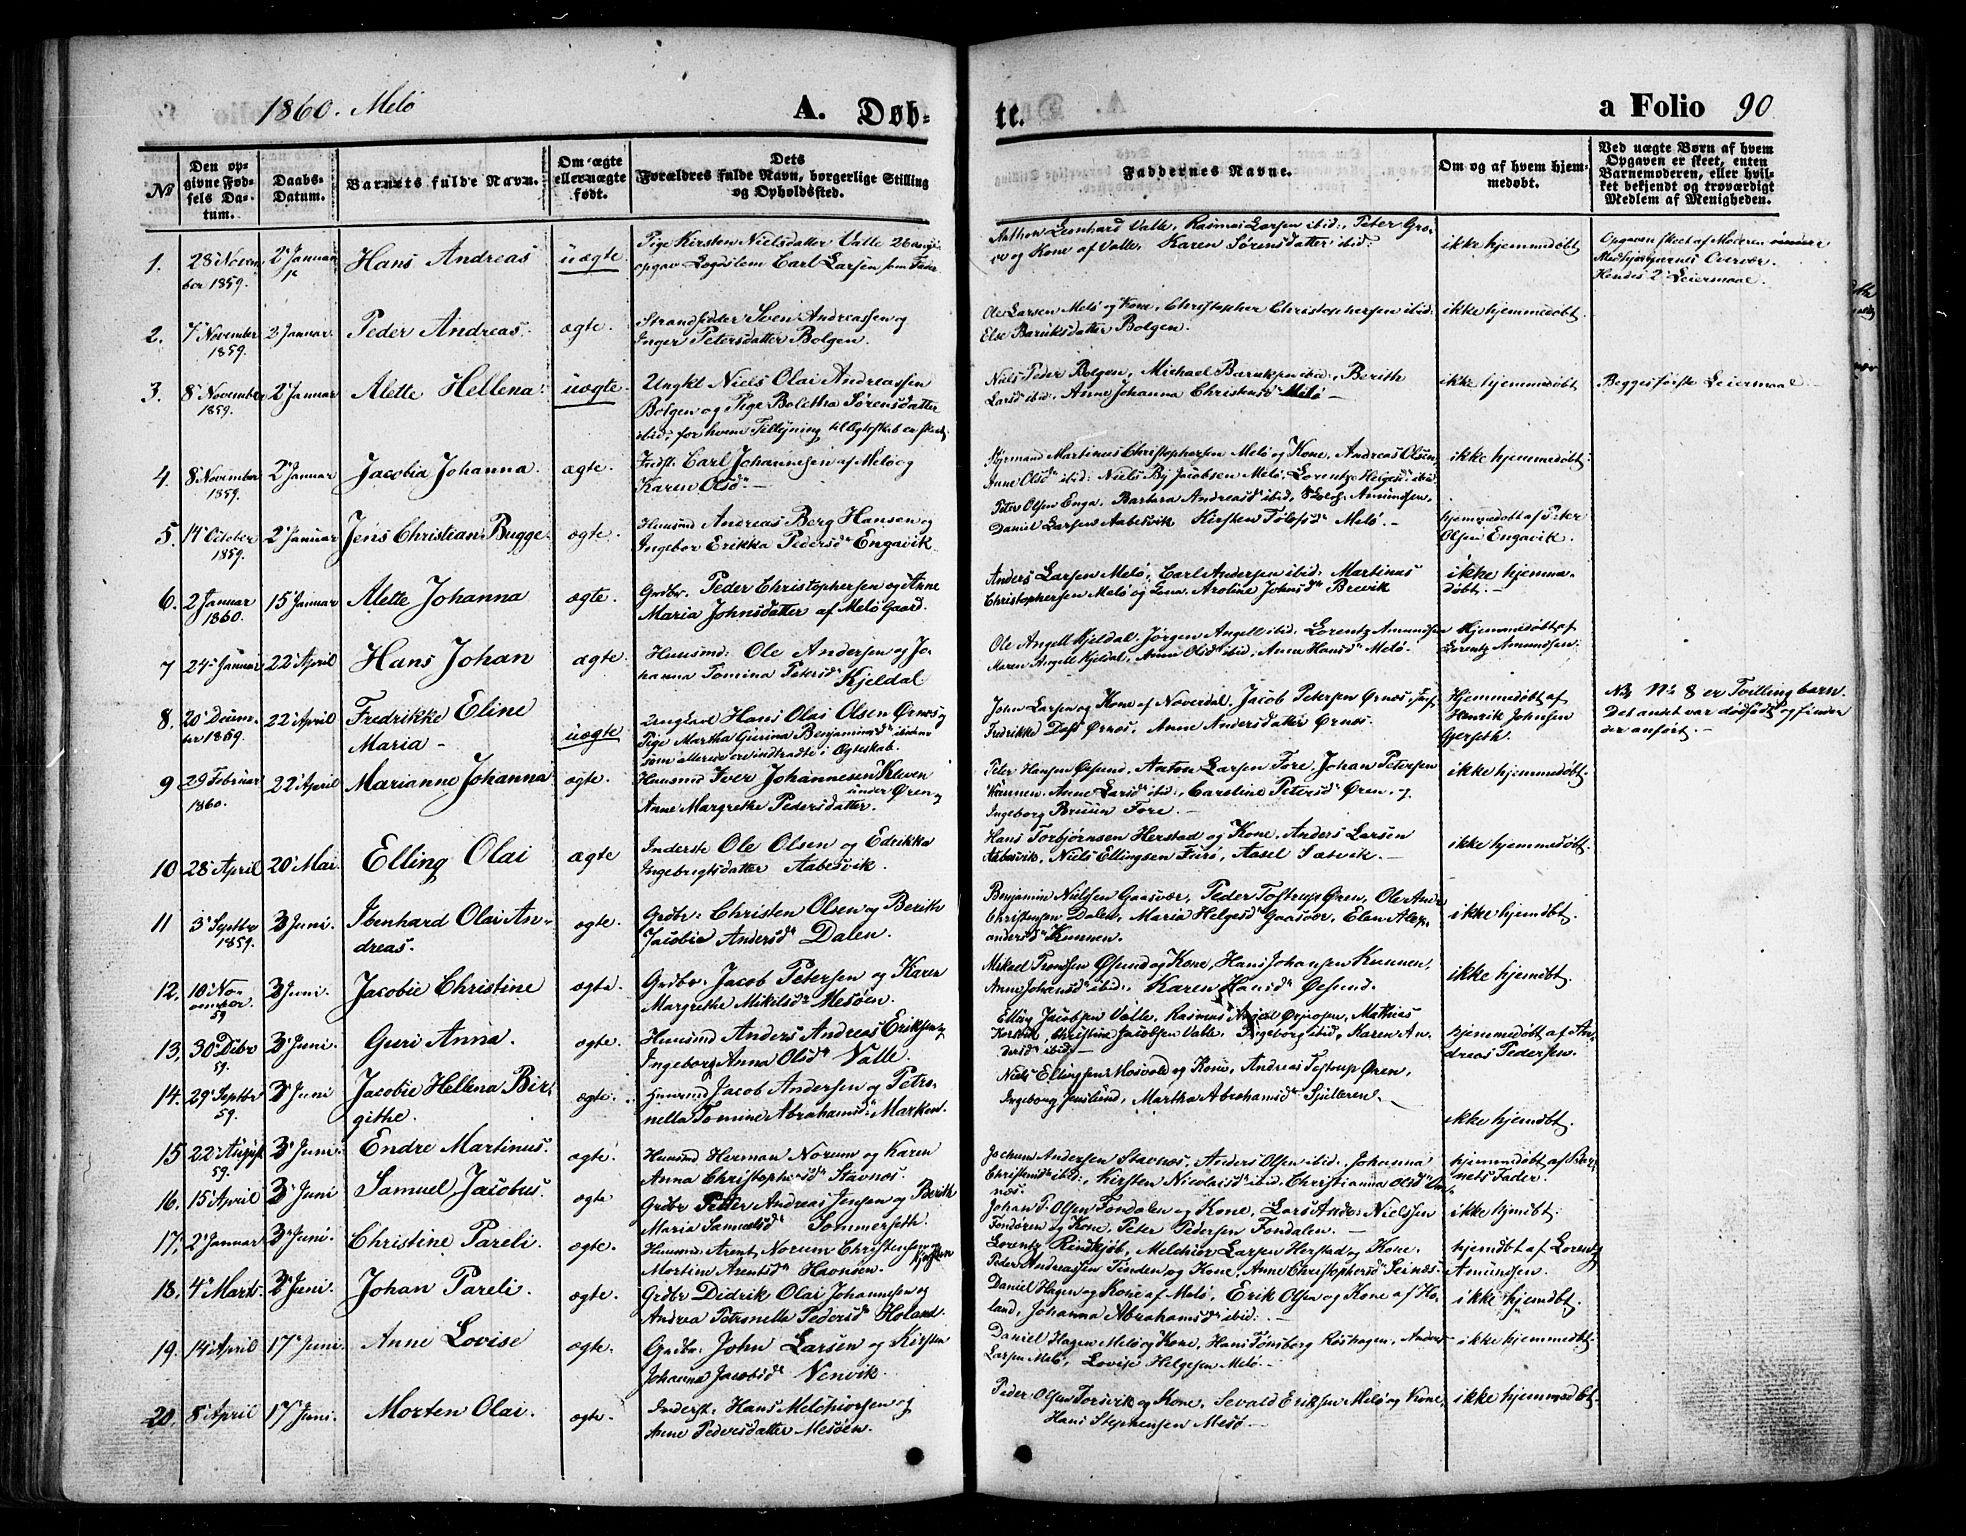 1860. Melö A. Døb-
te. a Folio 90
No
Den op-
givne Fød-
sels Da-
tum.
Daabs-
Datum.
Barnets fulde Navn.
Om ægte
eller uægte
født.
Dets
Forældres fulde Navn, borgerlige Stilling
og Opholdssted.
Faddernes Navne.
Om og af hvem hjem-
medøbt.
Ved uægte Børn af hvem
Opgaven er skeet, enten
Barnemoderen, eller hvil-
ket bekjendt og troværdigt
Medlem af Menigheden.
1. 28 Novem
ber 1859. 2 Januar Hans Andreas uægte
Pige Kirsten Nielsdatter Valle 26
opgav Carl Larsen som Fader
Anthon Leonhard Valle, Rasmus Larsen ibid., Peter Gro-
og Kone af Valle, Karen Sörensdatter ibid.
ikke hjemmedøbt
Opgaven skeet af Moderen
Overvær.
Hendes 2 Leiermaal.
2. 7 November
1859. 2 Januar. Peder Andreas. ægte.
Strandsidder Sven Andreassen og
Inger Petersdatter Bolgen.
Ole Larsen Melö og Kone, Christopher Christophersen ibid.
Else Baruksdatter Bolgen.
ikke hjemmedøbt.
3. 8 November
1859. 2 Januar Alette Hellena. uægte.
Ungkl Niels Olai Andreassen
Bolgen og Pige Bolettha Sörensdatter
ibid, for hvem Tillysning til Ægteskab er skeet
Niels Peder Bolgen, Michael Baruksen ibid., Berith
Larsd ibid., Anne Johanna Christensd Melö
ikke hjemmedøbt
Begges første Leiermaal
4. 8 November
1859. 2 Januar Jacobia Johanna. ægte.
Indst. Carl Johannesen af Melö og
Karen Olsd.
Martinus Christophersen Melö og Kone, Andreas Olsen,
Anne Olsd ibid: Niels By Jacobsen Melö, Lorentze Helgesd. ibid
ikke hjemmedøbt.
5. 14 October
1859. 2 Januar Jens Christian Bugge. ægte.
Huusmd Andreas Berg Hansen og
Ingebor Erikka Pedersd Engavik
Peter Olsen Enga, Barbara Andreasd ibid, Amundsen,
Daniel Larsen Aabesvik Kirsten Tolefsd Melö.
hjemmedøbt af Peter
Olsen Engavik.
6. 2 Januar
1860. 15 Januar Alette Johanna ægte.
Grdbr. Peder Christophersen og Anne
Maria Johnsdatter af Melö Gaard.
Anders Larsen Melö, Carl Andersen ibid. Martinus
Christophersen Melö og Kone. Aroline Johnsd Breivik
ikke hjemme-
døbt.
7 24 Januar 22 April Hans Johan ægte.
Huusmd: Ole Andersen og Jo-
hanna Tomina Petersd Kjeldal
Ole Angell Kjeldal, Jørgen Angell ibid. Lorentz Amundsen
Maren Angell Kjeldal, Anne Olsd ibid, Anne Hansd Melö.
Hjemmedøbt af
Lorentz Amundsen.
8. 20 Decem-
ber 1859 22 April Fredrikke Eline
Maria uægte
Ungkarl Hans Olai Olsen Ørnæs og
Pige Martha Gurina Benjaminsd ibidem
som allerede ere indtraadte i Ægteskab.
John Larsen og Kone af Noverdal, Jacob Petersen Ørnæs,
Fredrikke Dass Ørnæs, Anne Andersdatter Ørnæs.
Hjemmedøbt af
Henrik Johnsen
Gjerseth.
No 8 er Tvillingbarn.
Det andet var dødfødt og findes
der anført.
9 29 Februar
1860. 22 April Marianne Johanna ægte.
Huusmd Iver Johannesen Kleven
under Ören og
Anne Margrethe Pedersdatter.
Peter Hansen Øesund, Anton Larsen Fore, Johan Petersen
Kunnen, Anne Larsd ibid., Caroline Petersd Ören, og
Ingeborg Bruun Fore.
ikke hjemmedøbt.
10 28 April 20 Mai. Elling Olai ægte
Inderste Ole Olsen og Edrikka
Ingebrigtsdatter Aabesvik.
Hans Torbjørnsen Herstad og Kone, Anders Larsen
Aabesvik, Niels Ellingsen Furö, Aasel Sætvik.
ikke hjemmedøbt.
11 3 Septbr
1859. 3 Juni. Ibenhard Olai An-
dreas. ægte.
Grdbr. Christen Olsen og Berith
Jacobie Andersd Dalen.
Benjamin Nielsen Gaasvær, Peder Tostrup Ören, Ole Ande
Christensen Dalen, Maria Helgesd Gaasvær, Elen Alex-
andersd Kunnen.
ikke hjemdøbt.
12. 10 No-
vember.
59 3 Juni. Jacobie Christine ægte.
Grdbr. Jacob Petersen og Karen
Margrethe Mikelsd Mesöen.
Mikael Trondsen Øsund og Kone, Hans Johansen Kunnen,
Anne Johansd ibid., Karen Hansd Øesund.
ikke hjemdøbt.
13, 30 Decbr
59. 3 Juni. Guri Anna. ægte.
Huusmd Anders Andreas Eriksen og
Ingeborg Anna Olsd Valle.
Elling Jacobsen Valle, Rasmus, Mathias
Christine Jacobsen Valle, Ingeborg ibid, Karen An-
dersd ibid.
hjemmedøbt af An-
dreas Pedersen.
14. 29 Septbr
59. 3 Juni Jacobie Hellena Bir-
githe. ægte.
Huusmd Jacob Andersen og Petro-
nella Tomine Abrahamsd Marken.
Niels Ellingsen Mosvold og Kone, Andreas Tostrup Ören,
Ingeborg Jenslund, Martha Abrahamsd Spilderen.
ikke hjemdøbt.
15 22 August
59. 3 Juni. Endre Martinus. ægte.
Huusmd Herman Norum og Karen
Anna Christophersd Stavnæs.
Jochum Andersen Stavnæs, Anders Olsen ibid., Johanna
Christensd ibid., Kirsten Nicolaisd ibid. Christianna Olsd
næs.
hjemmedøbt af Bar-
nets Fader.
16. 15 April 3 Juni Samuel Jacobus. ægte
Grdbr Petter Andreas Jensen og Berith
Maria Samuelsd Sommerseth.
Johan P. Olsen Fondalen og Kone, Lars Ande Nielsen
Fondøren og Kone, Peter Pedersen Fondalen.
ikke hjmdbt.
17, 2 Januar 3 Juni. Christine Pareli. ægte.
Huusmd Arent Norum Christensen og
Mortine Arentsd Havnsen.
Lorentz Rendkjøb, Melchior Larsen Herstad og Kone.
Peder Andreassen Tinden og Kone, Anne Christophersd Seines.
hjemdøbt af Lorentz
Amundsen.
18. 4 Marts. 3 Juni. Johan Pareli. ægte.
Grdbr Didrik Olai Johannesen og
Andrea Petronella Pedersd Holand.
Daniel Hagen og Kone af Melö, Erik Olsen og Kone af Ho-
land, Johanna Abrahamsd ibid.
ikke hjemdbt.
19. 14 April 17 Juni. Anne Lovise ægte.
Grdbr. John Larsen og Kirsten
Johanna Jacobsd Nenvik.
Daniel Hagen Melö og Kone, Hans Tönsberg Röshagen, Anders
Larsen Melö, Lovise Helgesen Melö.
ikke hjemmedøbt.
20. 8 April 17 Juni. Morten Olai. ægte.
Inderst. Hans Melchiorsen og
Anne Pedersdatter Mesöen.
Peder Olsen Torsvik og Kone, Sevald Eriksen Melö og Kone,
Hans Stephensen Mesö.
ikke hjemmedøbt.